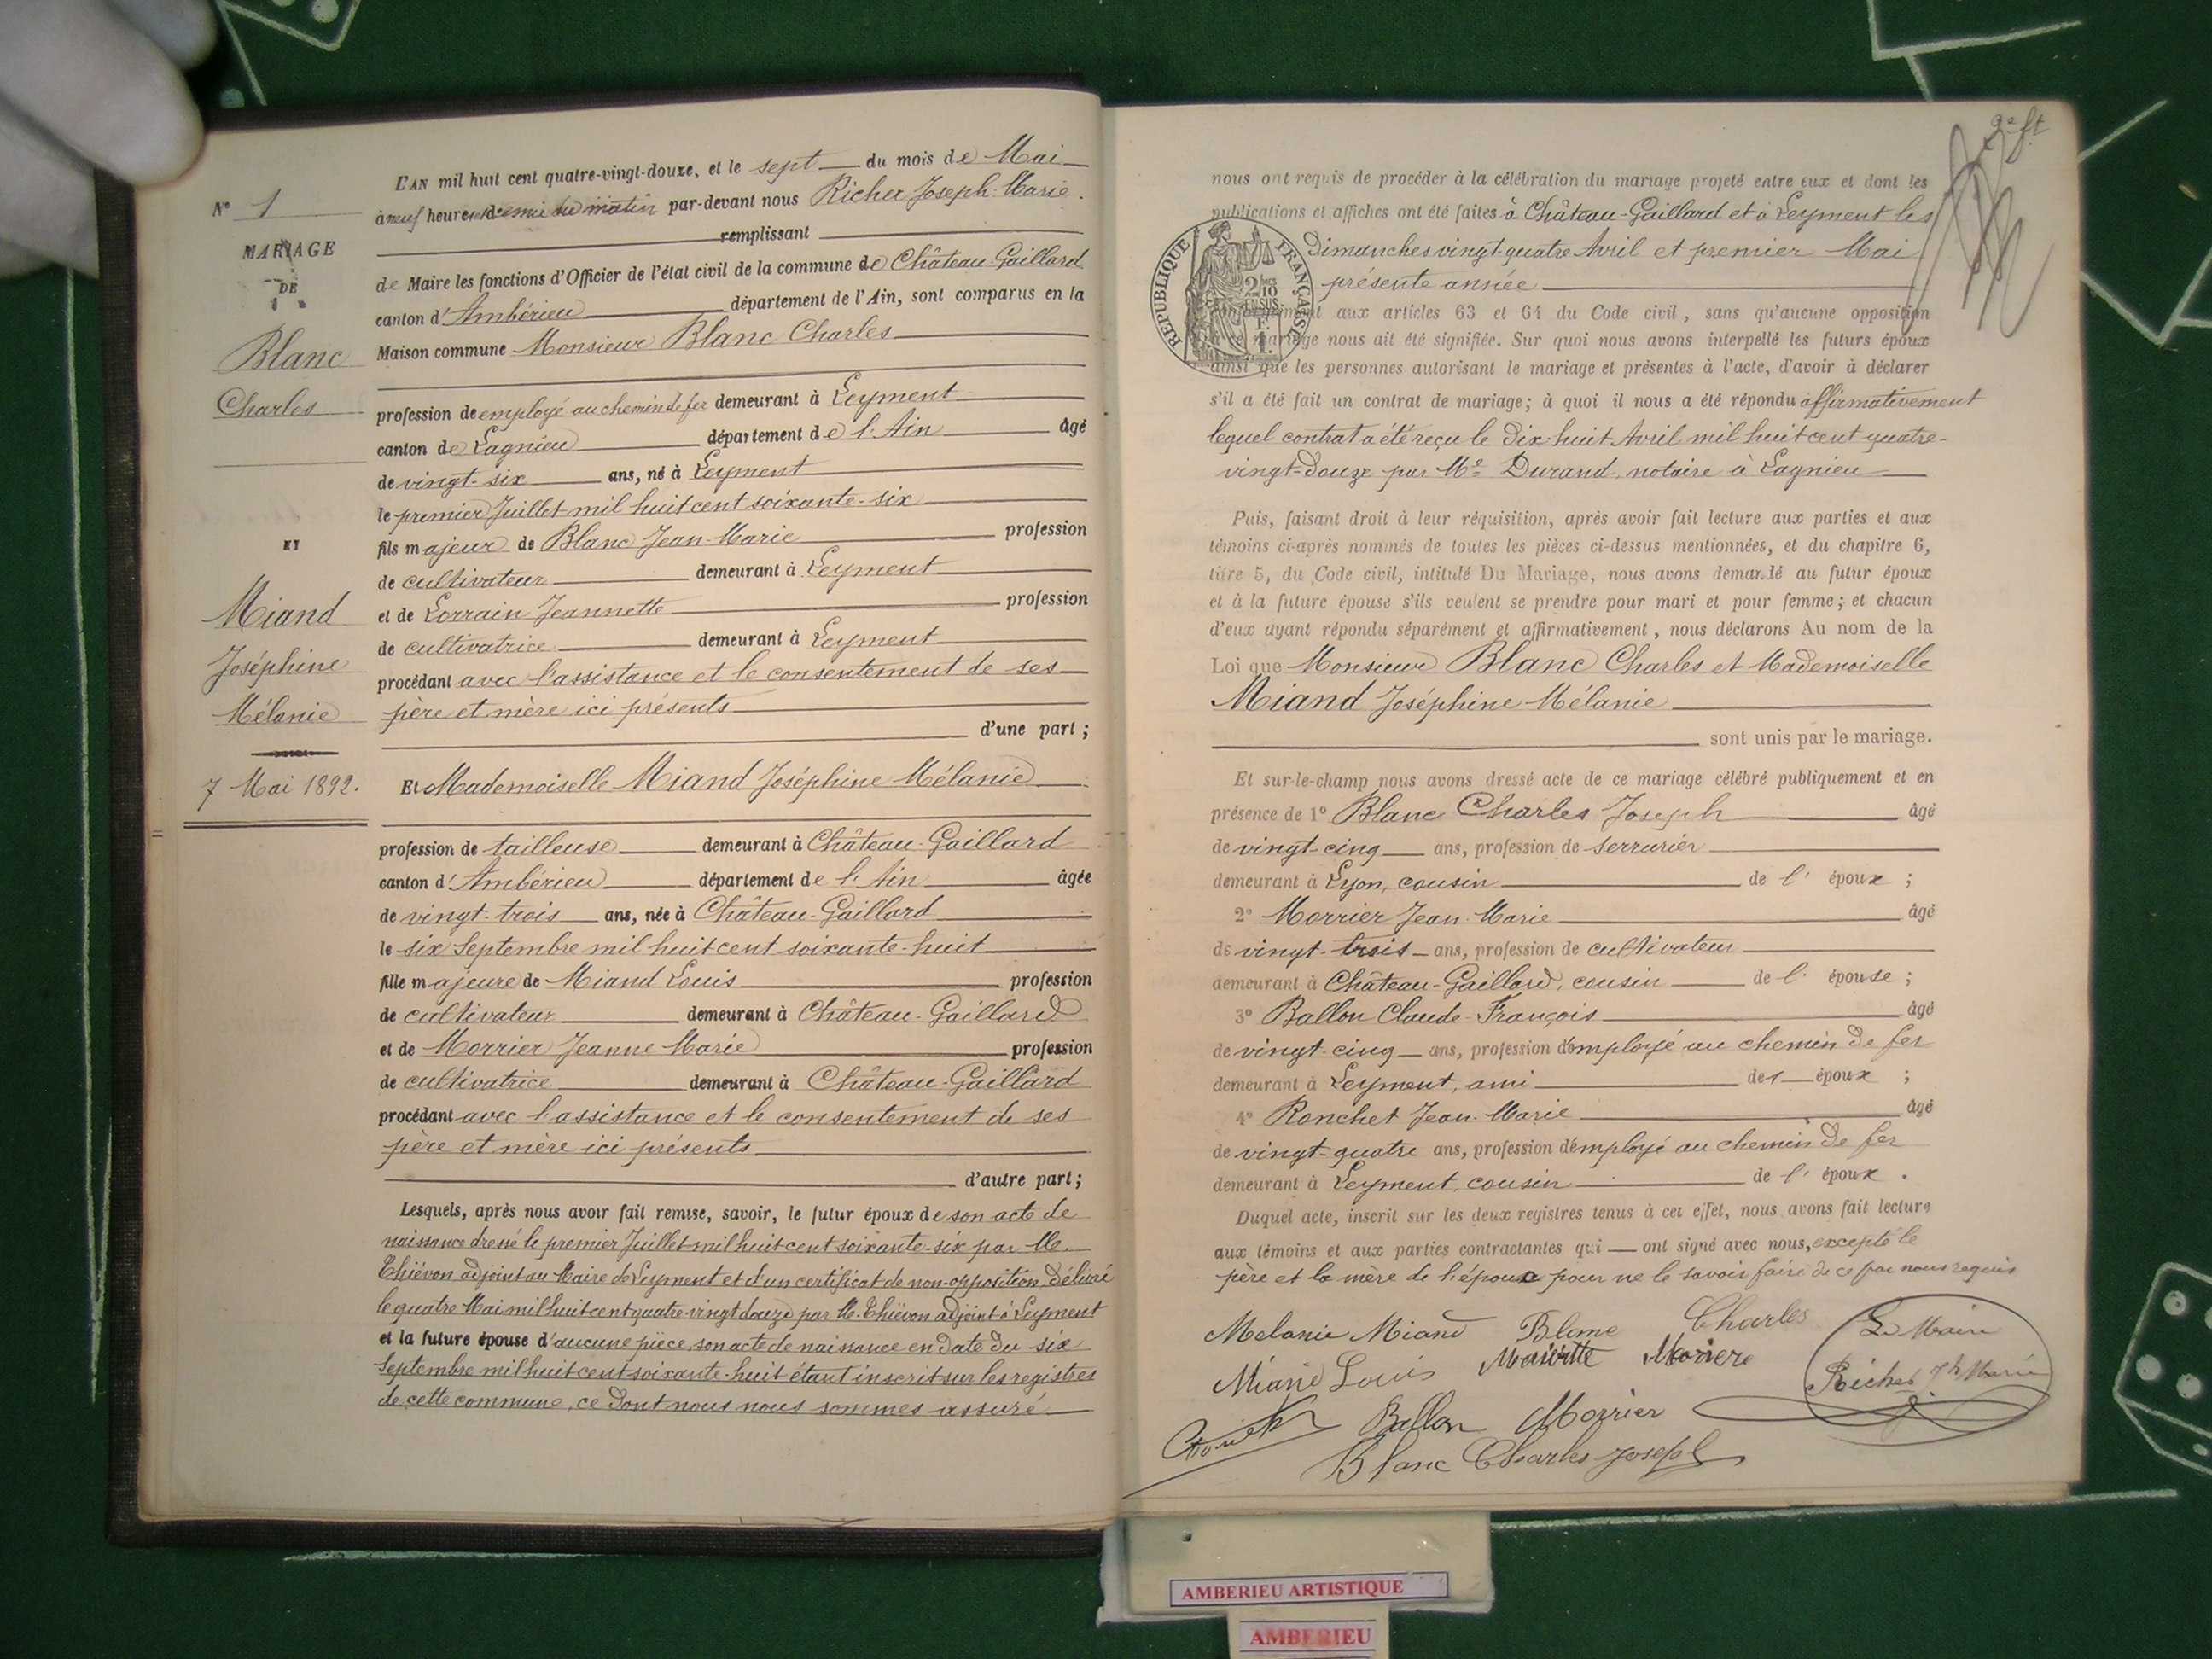 N° 1
MARIAGE
DE
Blanc
Charles
ET
Miand
Joséphine
Mélanie
7 Mai 1892.
L'AN mil huit cent quatre-vingt-douze, et le sept du mois de Mai
à neuf heures et demie du matin par-devant nous Richer Joseph-Marie.
remplissant
de Maire les fonctions d'Officier de l'état civil de la commune de Château-Gaillard
canton d'Ambérieu département de l'Ain, sont comparus en la
Maison commune Monsieur Blanc Charles
profession de employé au chemin de fer demeurant à Leyment
canton de Lagnieu département de l'Ain âgé
de vingt-six ans, né à Leyment
le premier Juillet mil huit cent soixante-six
fils majeur de Blanc Jean-Marie profession
de cultivateur demeurant à Leyment
et de Lorrain Jeannette profession
de cultivatrice demeurant à Leyment
procédant avec l'assistance et le consentement de ses
père et mère ici présents
d'une part;
Et Mademoiselle Miand Joséphine Mélanie
profession de tailleuse demeurant à Château-Gaillard
canton d'Ambérieu département de l'Ain âgée
de vingt-trois ans, née à Château-Gaillard
le six Septembre mil huit cent soixante-huit
fille majeure de Miand Louis profession
de cultivateur demeurant à Château-Gaillard
et de Morrier Jeanne Marie profession
de cultivatrice demeurant à Château-Gaillard
procédant avec l'assistance et le consentement de ses
père et mère ici présents
d'autre part;
Lesquels, après nous avoir fait remise, savoir, le futur époux de son acte de
naissance dressé le premier Juillet mil huit cent soixante-six par M.
Thiévon adjoint au Maire de Leyment et d'un certificat de non-opposition délivré
le quatre Mai mil huit cent quatre-vingt douze par M. Thiévon adjoint à Leyment
et la future épouse d'aucune pièce, son acte de naissance en date du six
Septembre mil huit cent soixante-huit étant inscrit sur les registres
de cette commune, ce dont nous nous sommes assuré
2e ft
nous ont requis de procéder à la célébration du mariage projeté entre eux et dont les
publications et affiches ont été faites à Château-Gaillard et à Leyment les
Dimanches vingt-quatre Avril et premier Mai
présente année
REPUBLIQUE FRANÇAISE
2/10 EN SUS
aux articles 63 et 64 du Code civil, sans qu'aucune opposition
à ce mariage nous ait été signifiée. Sur quoi nous avons interpellé les futurs époux
ainsi que les personnes autorisant le mariage et présentes à l'acte, d'avoir à déclarer
s'il a été fait un contrat de mariage; à quoi il nous a été répondu affirmativement
lequel contrat a été reçu le Dix-huit Avril mil huit cent quatre-
vingt-douze par Me Durand, notaire à Lagnieu
Puis, faisant droit à leur réquisition, après avoir fait lecture aux parties et aux
témoins ci-après nommés de toutes les pièces ci-dessus mentionnées, et du chapitre 6,
titre 5, du Code civil, intitulé Du Mariage, nous avons demandé au futur époux
et à la future épouse s'ils veulent se prendre pour mari et pour femme; et chacun
d'eux ayant répondu séparément et affirmativement, nous déclarons Au nom de la
Loi que Monsieur Blanc Charles et Mademoiselle
Miand Joséphine Mélanie
sont unis par le mariage.
Et sur-le-champ nous avons dressé acte de ce mariage célébré publiquement et en
présence de 1° Blanc Charles Joseph âgé
de vingt-cinq ans, profession de serrurier
demeurant à Lyon, cousin de l'époux;
2° Morrier Jean-Marie âgé
de vingt-trois ans, profession de cultivateur
demeurant à Château-Gaillard, cousin de l'épouse;
3° Ballon Claude-François âgé
de vingt-cinq ans, profession d'employé au chemin de fer
demeurant à Leyment, ami des époux;
4° Ronchet Jean-Marie âgé
de vingt-quatre ans, profession d'employé au chemin de fer
demeurant à Leyment, cousin de l'époux.
Duquel acte, inscrit sur les deux registres tenus à cet effet, nous avons fait lecture
aux témoins et aux parties contractantes qui ont signé avec nous, excepté le
père et la mère de l'époux pour ne le savoir faire de ce par nous requis
Melanie Miand Blanc Charles Le Maire
Miand Louis Mariette Moriere Richer Jh Marie
Ballon Morrier
Blanc Charles Joseph
AMBERIEU ARTISTIQUE
AMBERIEU